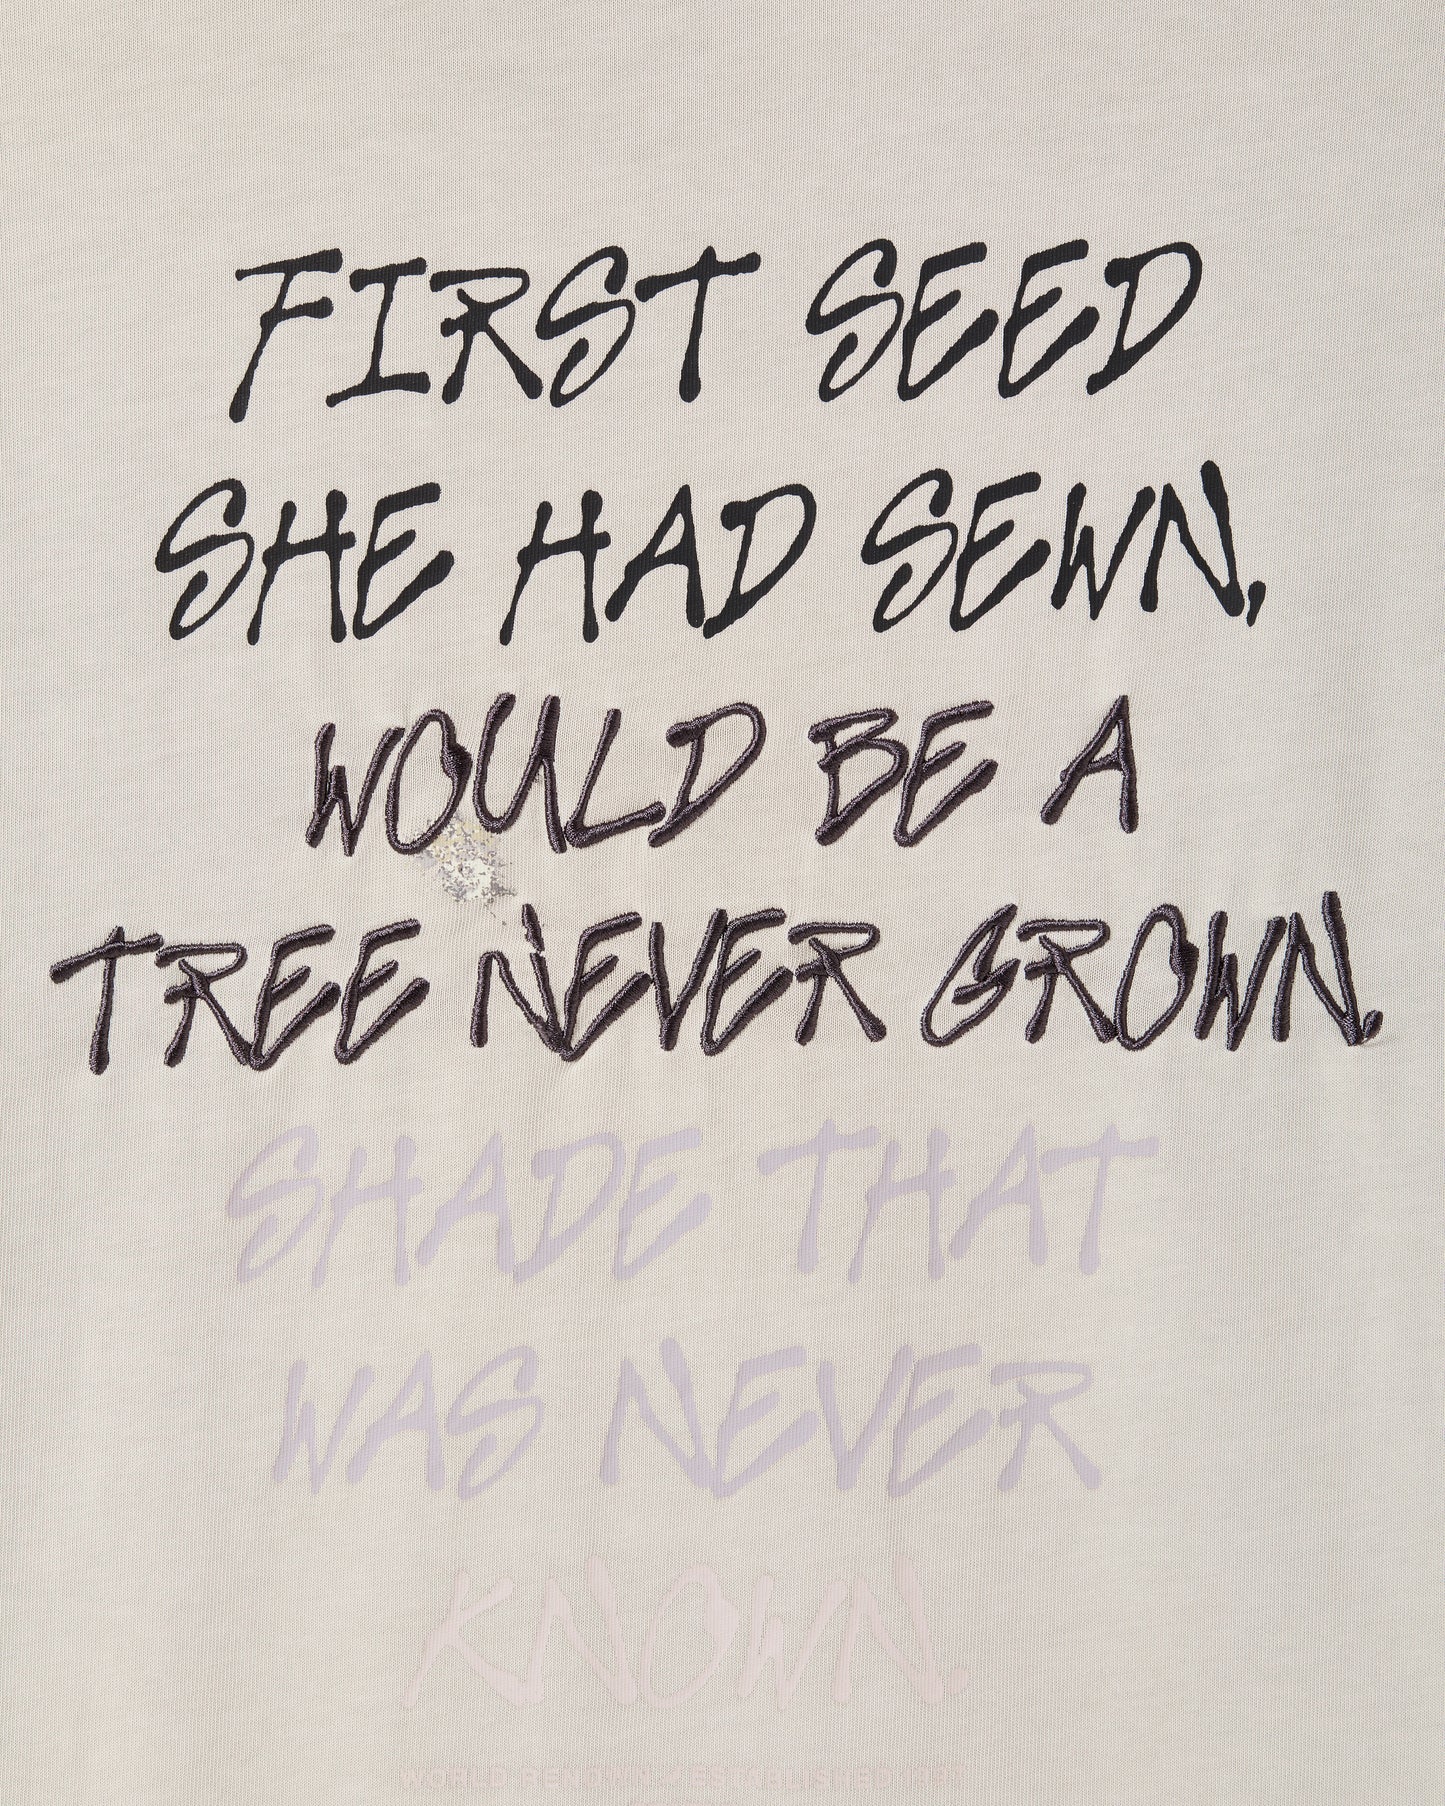 FIRST SEED
SHE HAD SEWN,
WOULD BE A
TREE NEVER GROWN.
SHADE THAT
WAS NEVER
KNOWN.
WORLD RENOWN ESTABLISHED